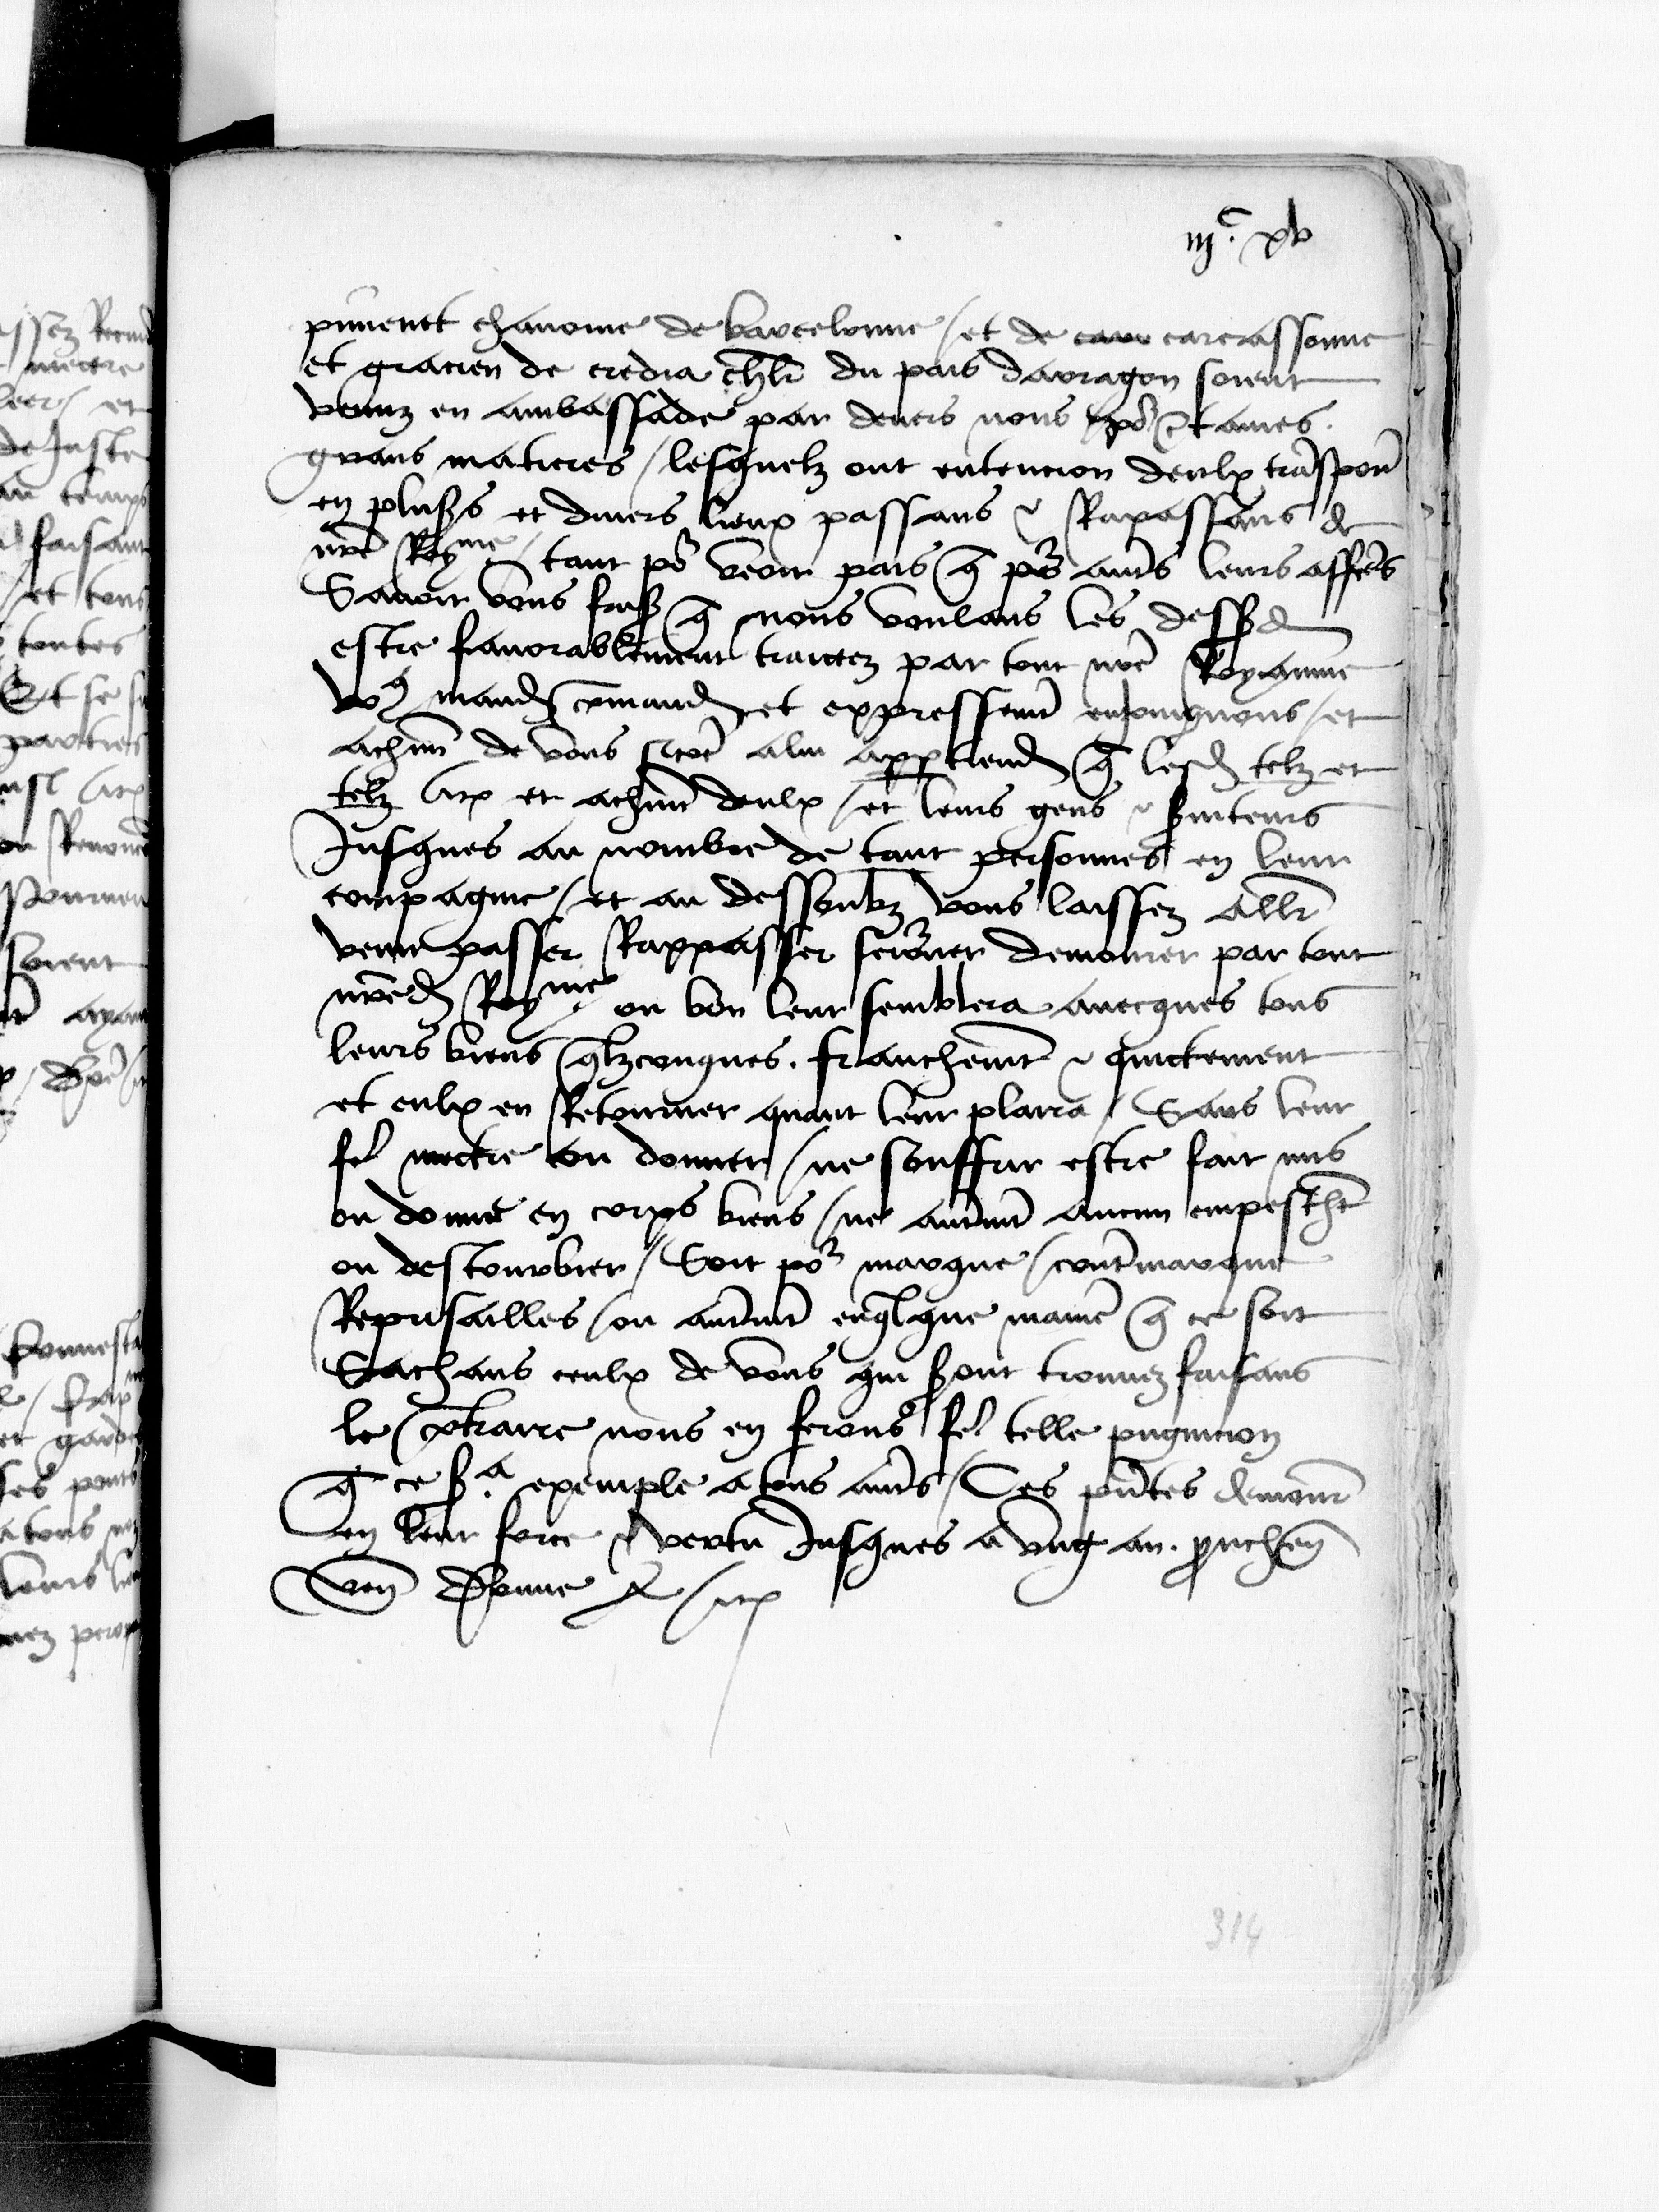 iijc. xv
pimenet chanoine de barcelonne / et de carcassonne
et gracien de credia chlr du pais darragon soient
venuz en ambassade par devers nous po certaines
grans matieres / lesquelz ont entencion deulx transpor
en pluss et divers lieux passans & Rapassans de
nre Royme / tant po veoir pais q pour autrs leurs affres
Savoir vous fais q nous voulans les dessusd
estre favorablement traictez par tout nre Royaume
vos mand comand et expressemt enjoingnons / et
achun de vous si coe a lui apptiend q lesd telz et
telz etc et achun deulx / et leurs gens & sviteurs
Jusques au nombre de tant personnes en leur
compagnie / et au dessoubz vous laissez allr
venir passer Rappasser seiourner demourer par tout
nred Royme ou bon leur semblera avecques tous
leurs biens qlzconques. franchemt & quictement
et eulx en Retourner quant leur plaira / Sans leur
fe mectre ou donner / ne souffrir estre fait mis
ou donne en corps biens / ne autrmt aucun empeschet
ou destourbier / Soit por marque / contrmarque
Reprisailles / ou autrmt en qlque manie q ce soit
Sachans ceulx de vous qui sont trouvez faisans
le contraire nous en ferons fe telle pugnicion
q ce sa exemple a tous autrs / Ces pntes demour
en leur force & vertu Jusques a ung an. prouchen
ven Donne A etc
314